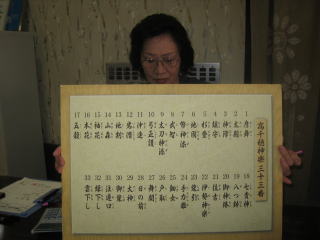 高千穂神楽三十三番
1 彦舞
2 太殿
3 神降
4 鎮守
5 杉登
6 地固
7 幣神添
8 武智
9 太刀神添
10 弓正護
11 沖逢
12 岩潜
13 地割
14 山森
15 袖花
16 本花
17 五穀
18 七貴神
19 八つ鉢
20 御神体
21 住吉
22 伊勢神楽
23 柴引
24 手力雄
25 鈿女
26 戸取
27 舞開
28 日の前
29 大神
30 御柴
31 注連口
32 繰下し
33 雲下し